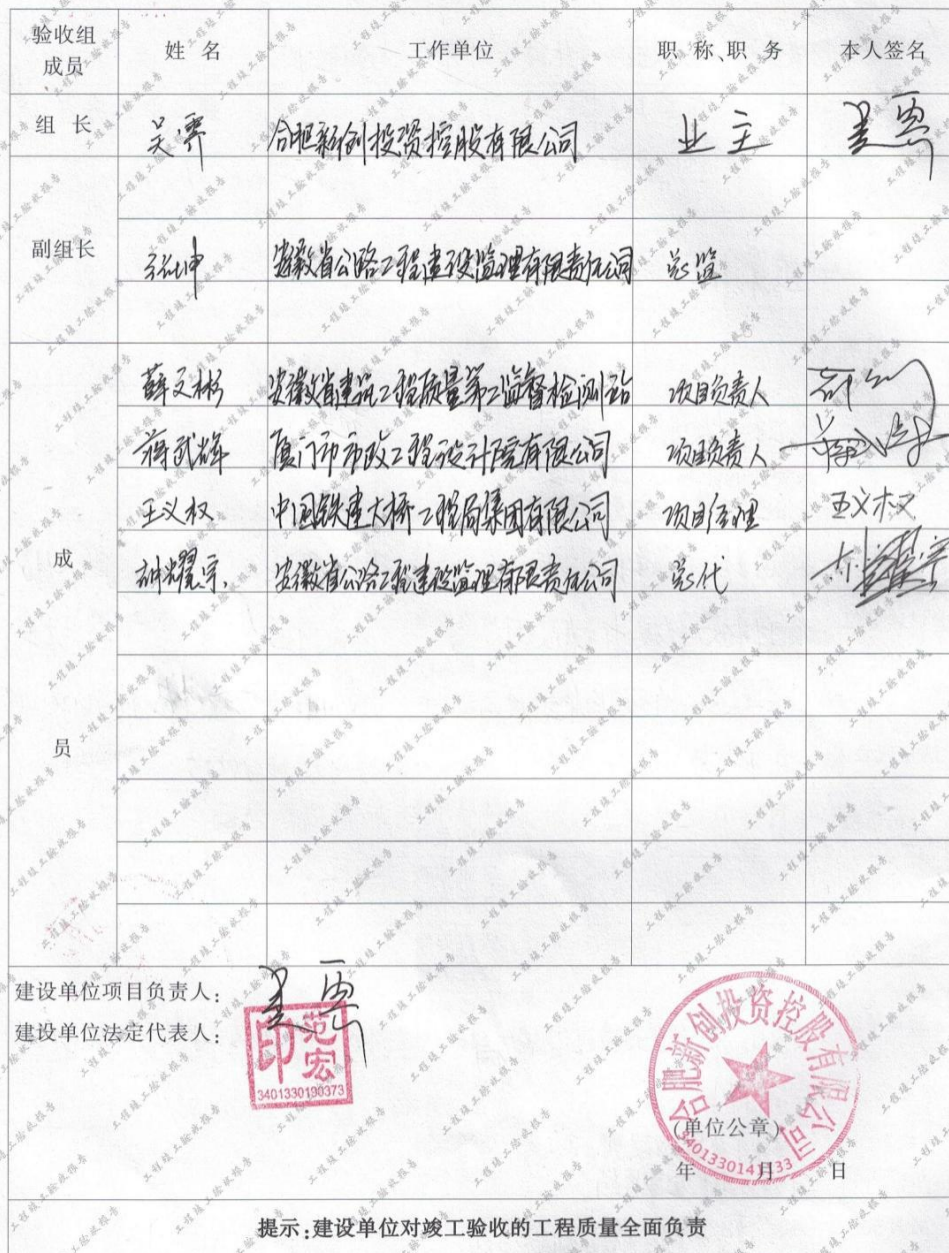 验收组成员 姓名 工作单位 职称、职务 本人签名
组长 吴霁 合肥新创投资控股有限公司 业主
副组长 安徽省公路工程建设监理有限责任公司 总监
成员
薛文彬 安徽省建筑工程质量第二监督检测站 项目负责人
蒋武辉 厦门市市政工程设计院有限公司 项目负责人
王义权 中国铁建大桥工程局集团有限公司 项目经理 王义权
胡耀宗 安徽省公路工程建设监理有限责任公司 总代
建设单位项目负责人:
建设单位法定代表人:
范宏印
3401330190373
合肥新创投资控股有限公司
(单位公章)
年 月 日
提示:建设单位对竣工验收的工程质量全面负责
工程竣工验收报告